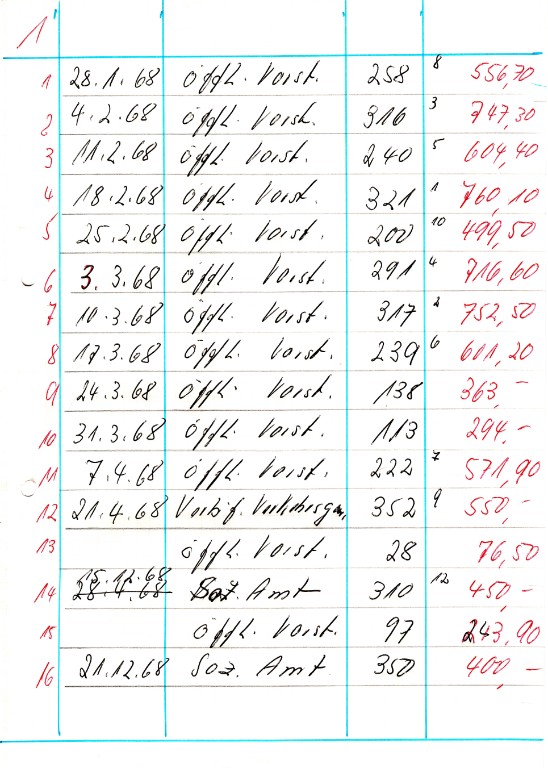 1
1 28.1.68 öffl. Vorst. 258 8 556,70
2 4.2.68 öffl. Vorst. 316 3 747,30
3 11.2.68 öffl. Vorst. 240 5 604,40
4 18.2.68 öffl. Vorst. 321 1 760,10
5 25.2.68 öffl. Vorst. 200 10 499,50
6 3.3.68 öffl. Vorst. 291 4 716,60
7 10.3.68 öffl. Vorst. 317 2 752,50
8 17.3.68 öffl. Vorst. 239 6 601,20
9 24.3.68 öffl. Vorst. 138 363,-
10 31.3.68 öffl. Vorst. 113 294,-
11 7.4.68 öffl. Vorst. 222 7 571,90
12 21.4.68 352 9 550,-
13 öffl. Vorst. 28 76,50
15.12.68
14 28.4.68 Soz. Amt 310 12 450,-
15 öffl. Vorst. 97 243,90
16 21.12.68 Soz. Amt 350 400,-